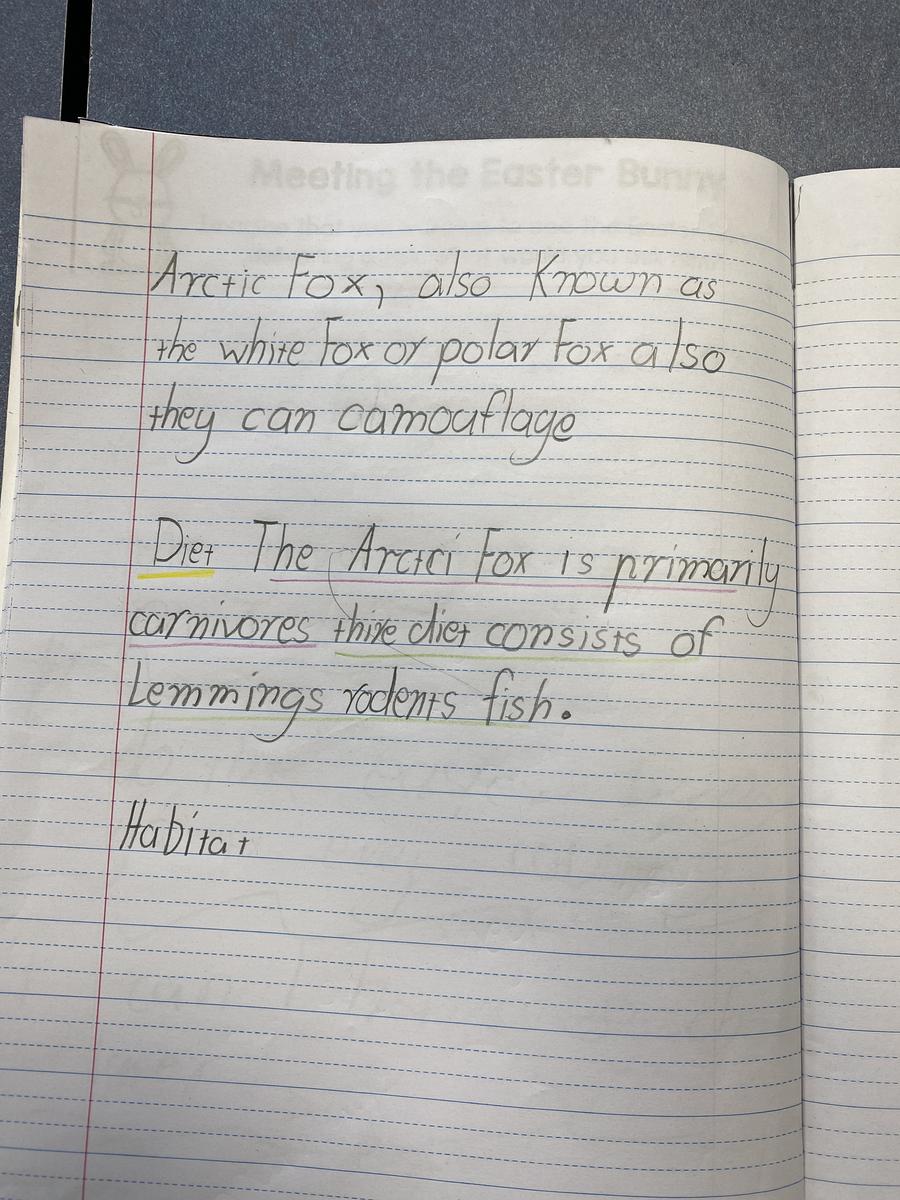 Meeting the Easter Bunny
Arctic Fox, also Known as
the white Fox or polar Fox also
they can camouflage
Diet The Arctci Fox is primarily
carnivores thire diet consists of
Lemmings rodents fish.
Habitat